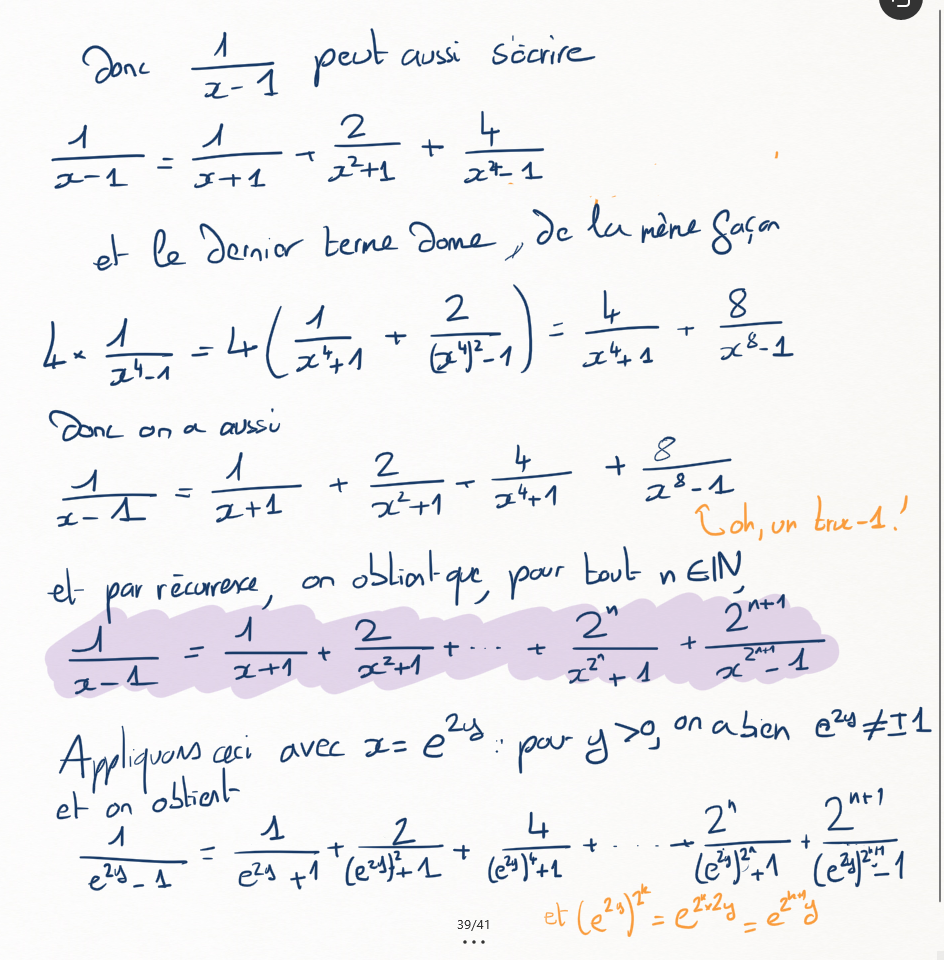 Donc 1/(x-1) peut aussi s'écrire
1/(x-1) = 1/(x+1) + 2/(x²+1) + 4/(x⁴-1)
et le dernier terme donne, de la même façon
4 × 1/(x⁴-1) = 4(1/(x⁴+1) + 2/((x⁴)²-1)) = 4/(x⁴+1) + 8/(x⁸-1)
Donc on a aussi
1/(x-1) = 1/(x+1) + 2/(x²+1) + 4/(x⁴+1) + 8/(x⁸-1)
oh, un truc-1!
et par récurrence, on obtient que, pour tout n ∈ ℕ,
1/(x-1) = 1/(x+1) + 2/(x²+1) + ... + 2^n/(x^(2^n)+1) + 2^(n+1)/(x^(2^(n+1))-1)
Appliquons ceci avec x = e^(2y) : pour y > 0, on a bien e^(2y) ≠ ±1
et on obtient
1/(e^(2y)-1) = 1/(e^(2y)+1) + 2/((e^(2y))²+1) + 4/((e^(2y))⁴+1) + .... + 2^n/((e^(2y))^(2^n)+1) + 2^(n+1)/((e^(2y))^(2^(n+1))-1)
et (e^(2y))^(2^k) = e^(2^k×2y) = e^(2^(k+1)y)
39/41